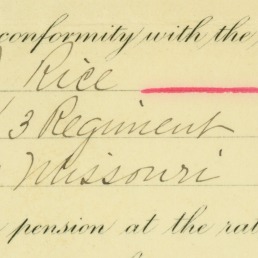 conformity with the
Rice
3 Regiment
Missouri
pension at the rat